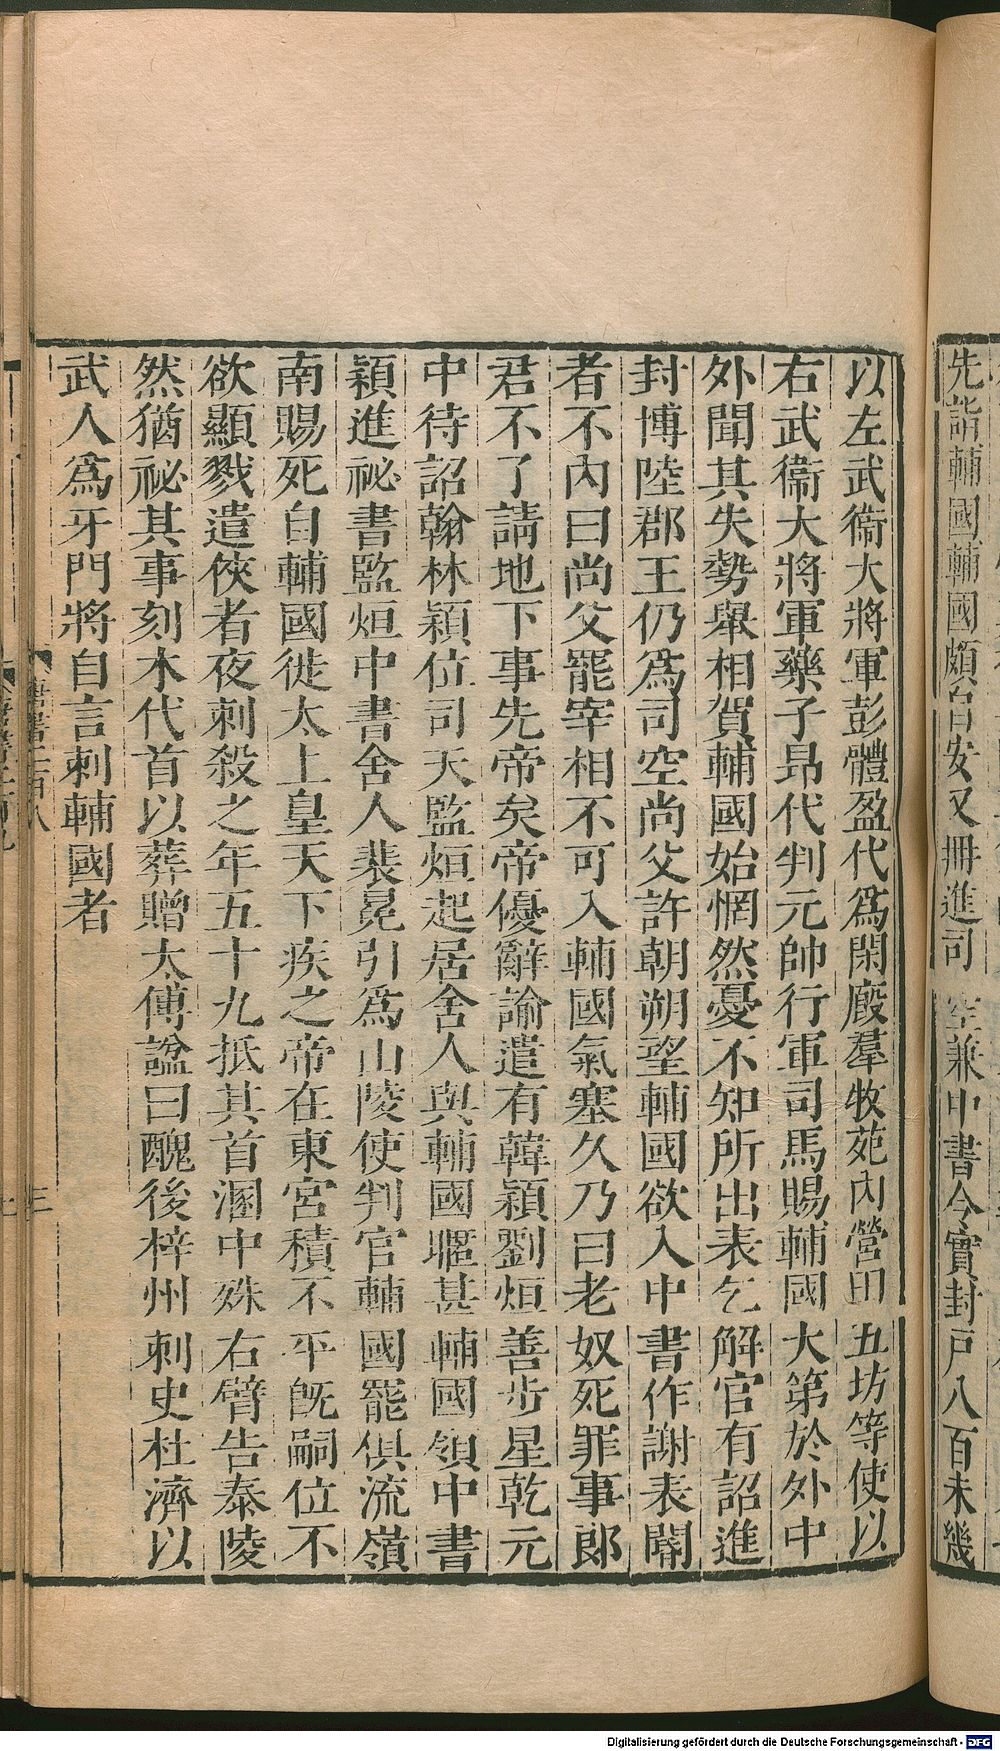 先詣輔國輔國頗自安又冊進司空兼中書令實封戸八百未幾
以左武衞大將軍彭體盈代爲閑廄羣牧苑內營田五坊等使以
右武衞大將軍藥子昻代判元帥行軍司馬賜輔國大第於外中
外聞其失勢舉相賀輔國始惘然憂不知所出表乞解官有詔進
封博陸郡王仍爲司空尚父許朝朔望輔國欲入中書作謝表閽
者不內曰尚父罷宰相不可入輔國氣塞久乃曰老奴死罪事郎
君不了請地下事先帝矣帝優辭諭遣有韓穎劉烜善步星乾元
中待詔翰林穎位司天監烜起居舍人與輔國暱甚輔國領中書
穎進祕書監烜中書舍人裴冕引爲山陵使判官輔國罷俱流嶺
南賜死自輔國徙太上皇天下疾之帝在東宮積不平旣嗣位不
欲顯戮遣俠者夜刺殺之年五十九抵其首溷中殊右臂告泰陵
然猶祕其事刻木代首以葬贈太傅諡曰醜後梓州刺史杜濟以
武人爲牙門將自言刺輔國者
唐書二百八
三
Digitalisierung gefördert durch die Deutsche Forschungsgemeinschaft - DFG